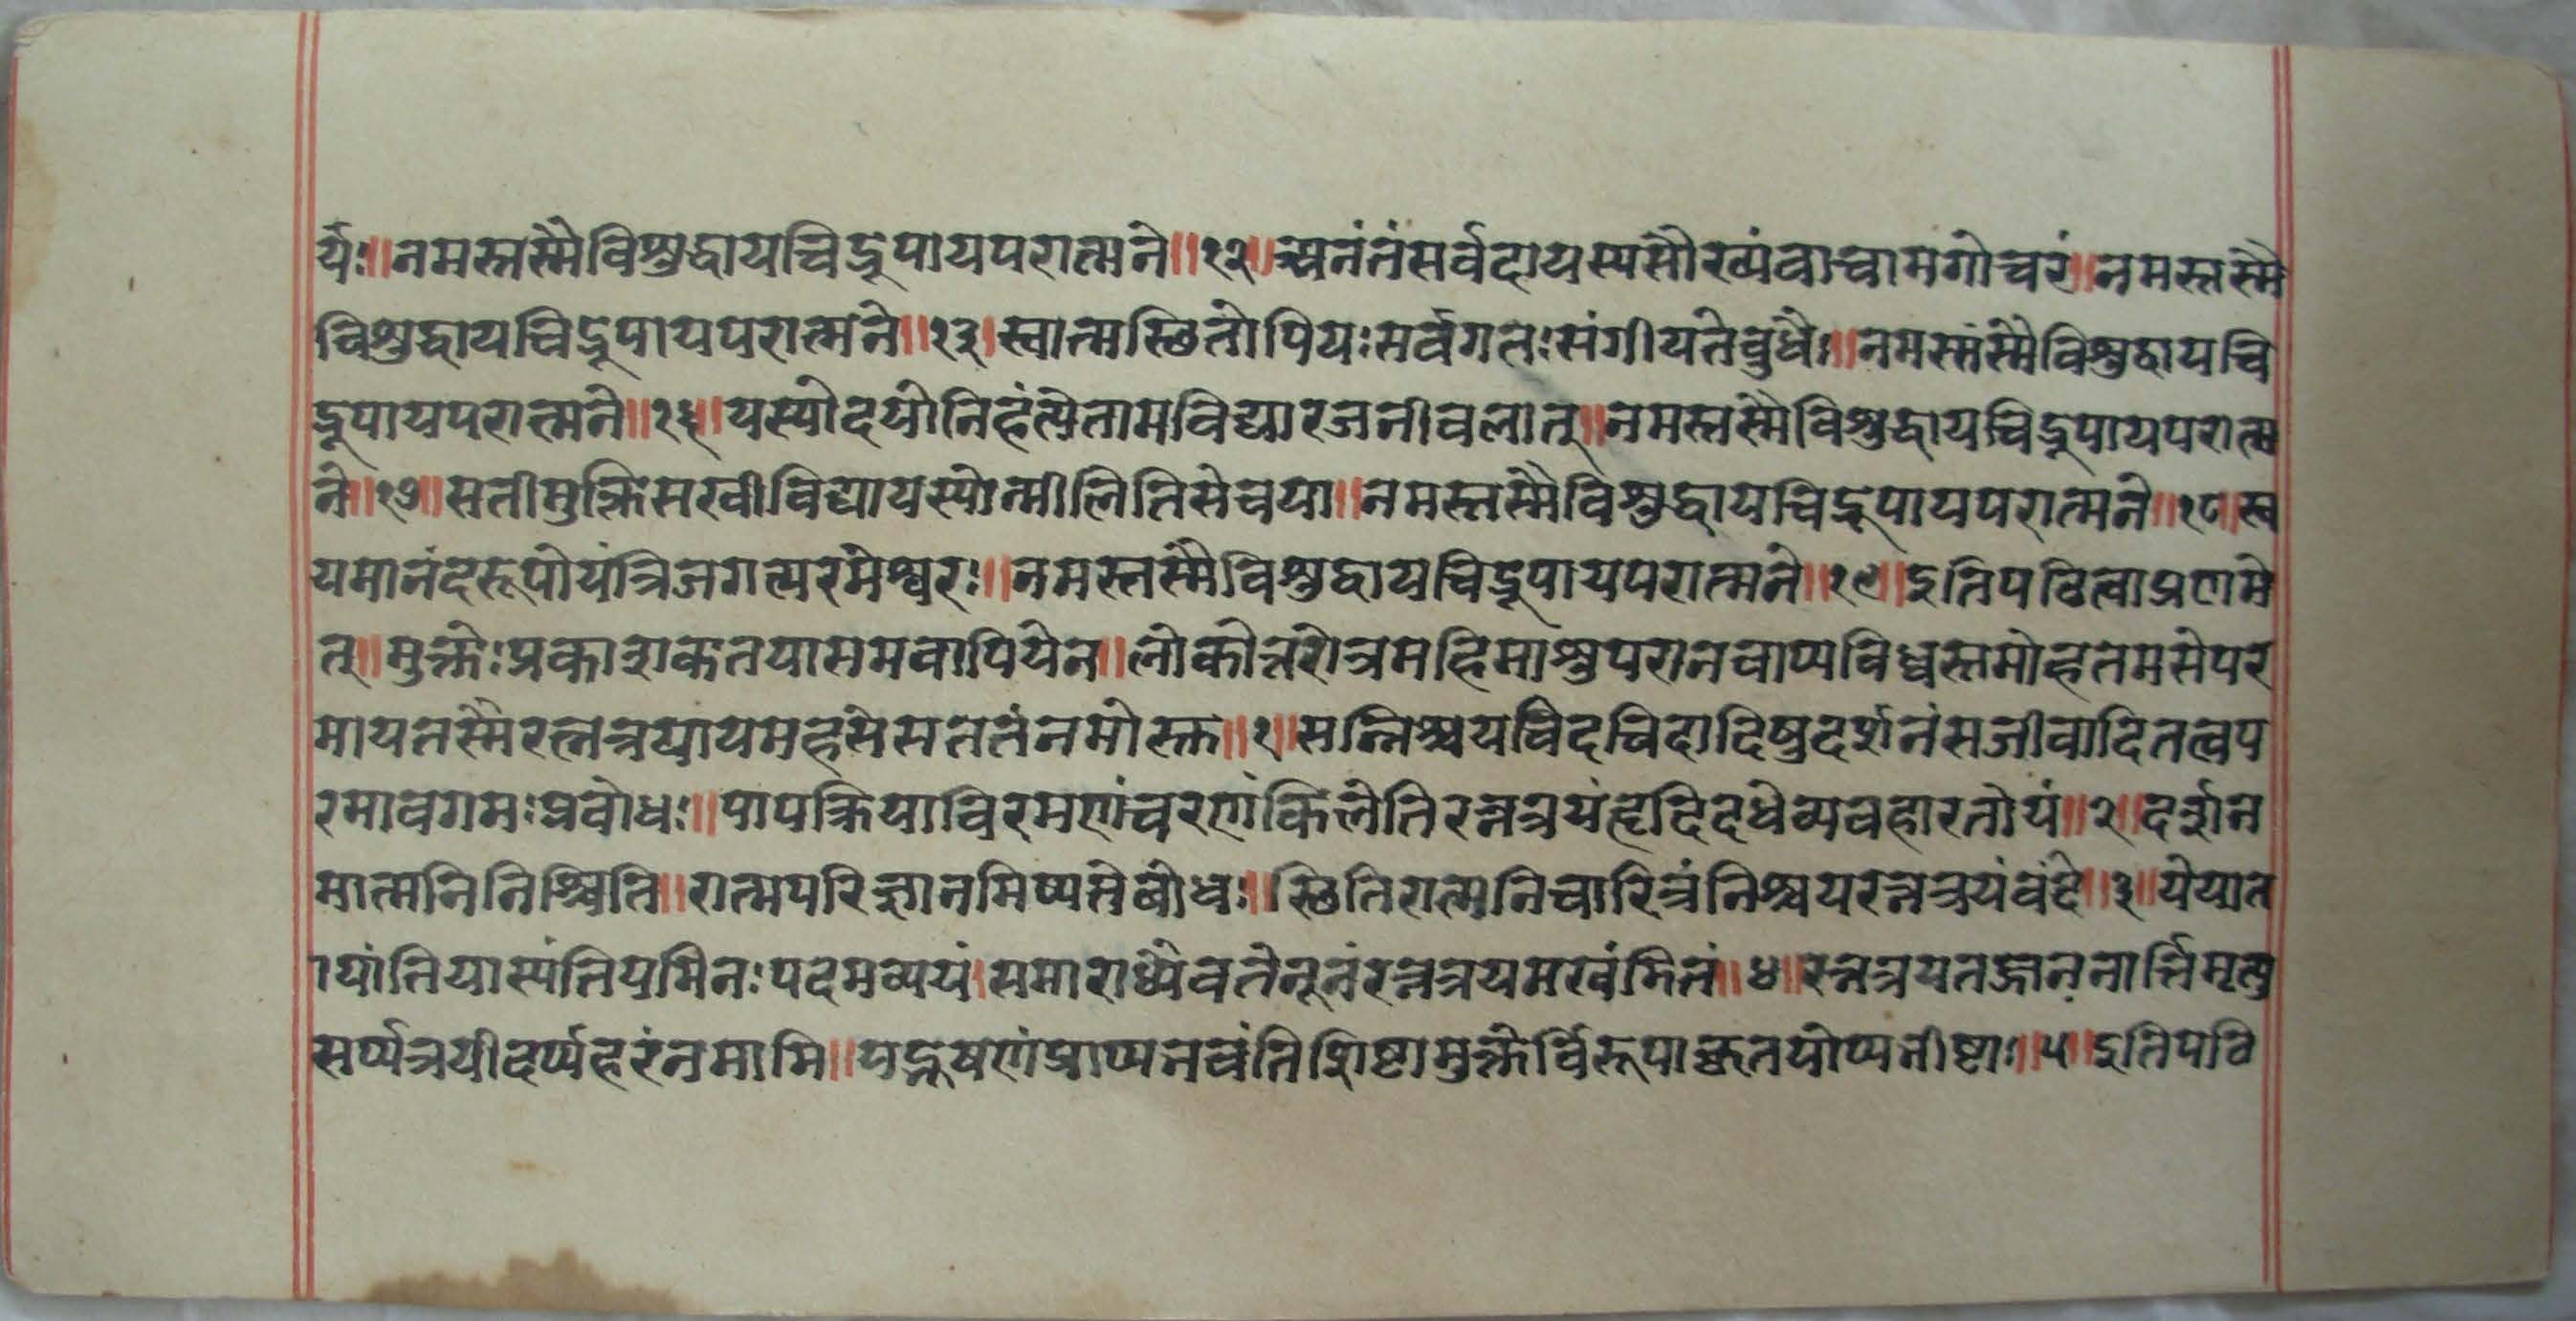 र्यः॥नमस्तस्मैविशुद्धायचिद्रूपायपरात्मने॥१२॥अनंतंसर्वदायस्यसौख्यंवाचामगोचरं॥नमस्तस्मै
विशुद्धायचिद्रूपायपरात्मने॥१३॥स्वात्मस्थितोपियःसर्वगतःसंगीयतेबुधैः॥नमस्तस्मैविशुद्धायचि
द्रूपायपरात्मने॥१६॥यस्योदयोनिहंत्येतामविद्यारजनीवलात्॥नमस्तस्मैविशुद्धायचिद्रूपायपरात्म
ने॥१७॥सतीमुक्तिसखीविद्यायस्योन्मीलितिसेवया॥नमस्तस्मैविशुद्धायचिद्रूपायपरात्मने॥१८॥स्व
यमानंदरूपोयंत्रिजगत्परमेश्वरः॥नमस्तस्मैविशुद्धायचिद्रूपायपरात्मने॥१९॥इतिपठित्वाप्रणमे
त्॥मुक्तेःप्रकाशकतयासमवापियेन॥लोकोत्तरोत्रमहिमाशुपरानवाप्यविध्वस्तमोहतमसेपर
मायतस्मैरत्नत्रयायमहसेसततंनमोस्तु॥१॥सन्निश्चयश्चिदचिदादिषुदर्शनंसजीवादितत्वप
रमावगमःप्रवोधः॥पापक्रियाविरमणंचरणंकिलेतिरत्नत्रयंहृदिदधेव्यवहारतोयं॥२॥दर्शन
मात्मनिनिश्चिति॥रात्मपरिज्ञानमिष्यतेबोधः॥स्थितिरात्मनिचारित्रंनिश्चयरत्नत्रयंवंदे॥३॥येयात
ायांतियास्यंतियमिनःपदमव्ययं।समाराध्यैवतेनूनंरत्नत्रयमखंमितं॥४॥रत्नत्रयतज्जननार्त्तिमृत्यु
सर्प्पत्रयीदर्प्पहरंनमामि॥यद्भूषणंप्राप्यनवंतिशिष्टामुक्तेर्विरूपाकृतयोप्यतीष्टाः॥५॥इतिपवि